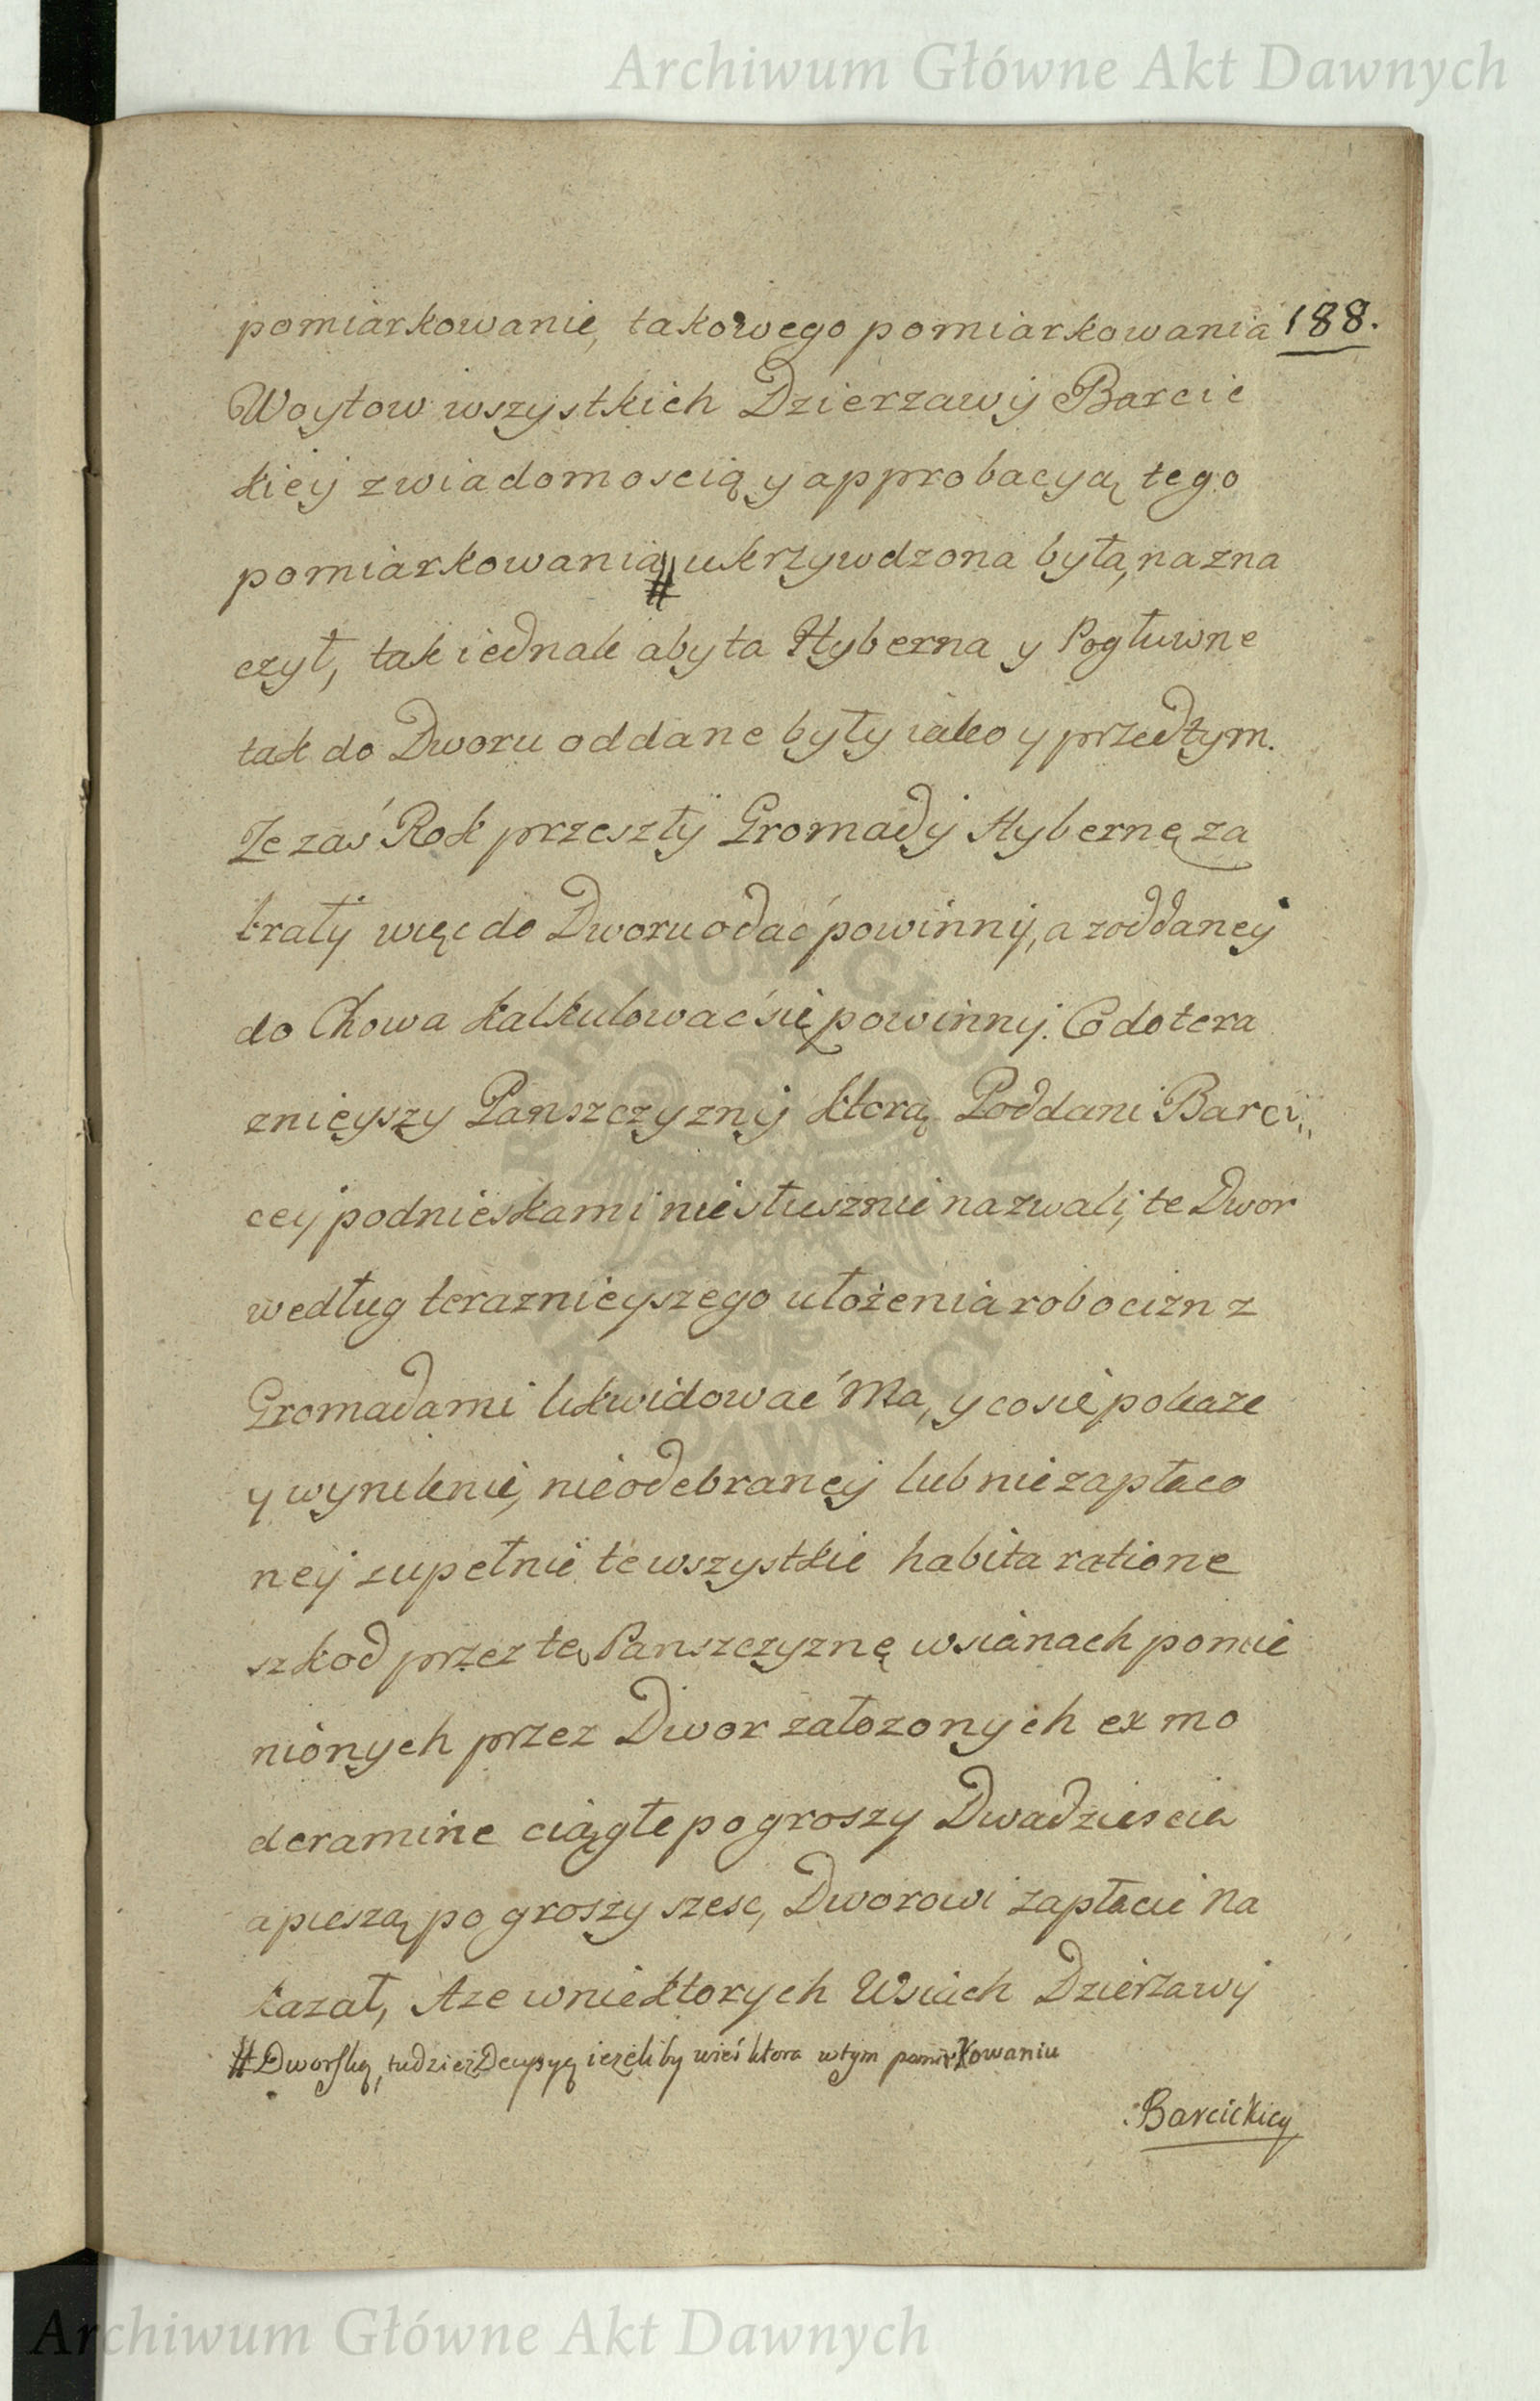 Archiwum Główne Akt Dawnych
188.
pomiarkowanie, takowego pomiarkowania
Woytow wszystkich Dzierzawÿ Barcic
kieÿ z wiadomoscią y approbacyą tego
pomiarkowania # ukrzywdzona była, nazna
czył, tak iednak aby ta Hyberna y Pogłuwne
tak do Dworu oddane były iako y przedtym.
Ze zaś Rok przeszłÿ Gromadÿ Hybernę za
brałÿ więc do Dworu odać powinnÿ, a z oddaneÿ
do Chowa kalkulować się powinnÿ. Co do tera
znieyszy Panszczyznÿ ktorą Poddani Barci„
ceÿ podnieskami niesłusznie nazwali, te Dwor
według teraznieyszego ułożenia robocizn z
Gromadami likwidować Ma, y co sie pokaze
y wyniknie, nieodebraneÿ lub niezapłaco
neÿ zupełnie te wszystkie habita ratione
szkod przez tę Panszczyznę w sianach pomie
nionych przez Dwor załozonych ex mo
deramine ciągłe po groszy Dwadziescia
a pieszą po groszy szesc, Dworowi zapłacic na
kazał, Aze w niektorych Wsiach Dzierzawÿ
# Dworską, tudziez Decyzyą iezeliby wieś ktora w tym pomiarkowaniu
Barcickiey
Archiwum Główne Akt Dawnych